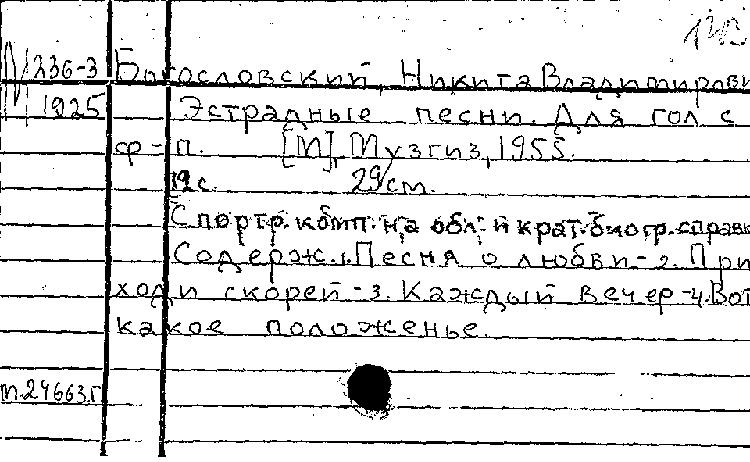 М 236-3 Богословский, Никита Владимирови
М 1925 Эстрадные песни. Для гол с
ф-п. [М], Музгиз, 1955.
12 с. 29 см.
С портр. комп. на обл. и крат. биогр. справк
Содерж. 1. Песня о любви - 2. При
ходи скорей - 3. Каждый вечер - 4. Вот
какое положенье.
п.24663.г